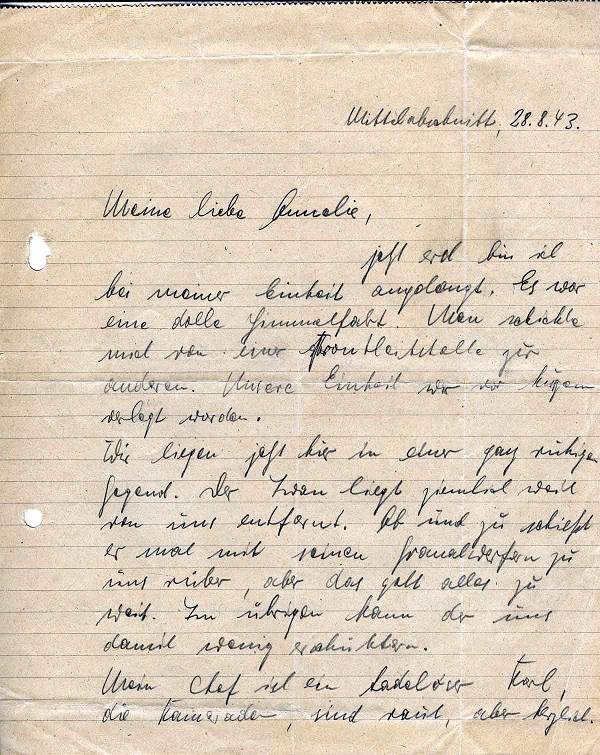 Mittelabschnitt, 28.8.43.
Meine liebe Annelie,
jetzt erst bin ich
bei meiner Einheit angelangt. Es war
eine dolle Himmelfahrt. Man schickte
mich von einer Frontleitstelle zur
anderen. Unsere Einheit war vor kurzem
verlegt worden.
Wir liegen jetzt hier in einer ganz ruhigen
Gegend. Der Iwan liegt ziemlich weit
von uns entfernt. Ab und zu schießt
er mal mit seinen Granatwerfern zu
uns rüber, aber das geht alles zu
weit. Im übrigen kann der uns
damit wenig erschüttern.
Mein Chef ist ein tadelloser Kerl,
die Kameraden, sind rauh, aber herzlich.